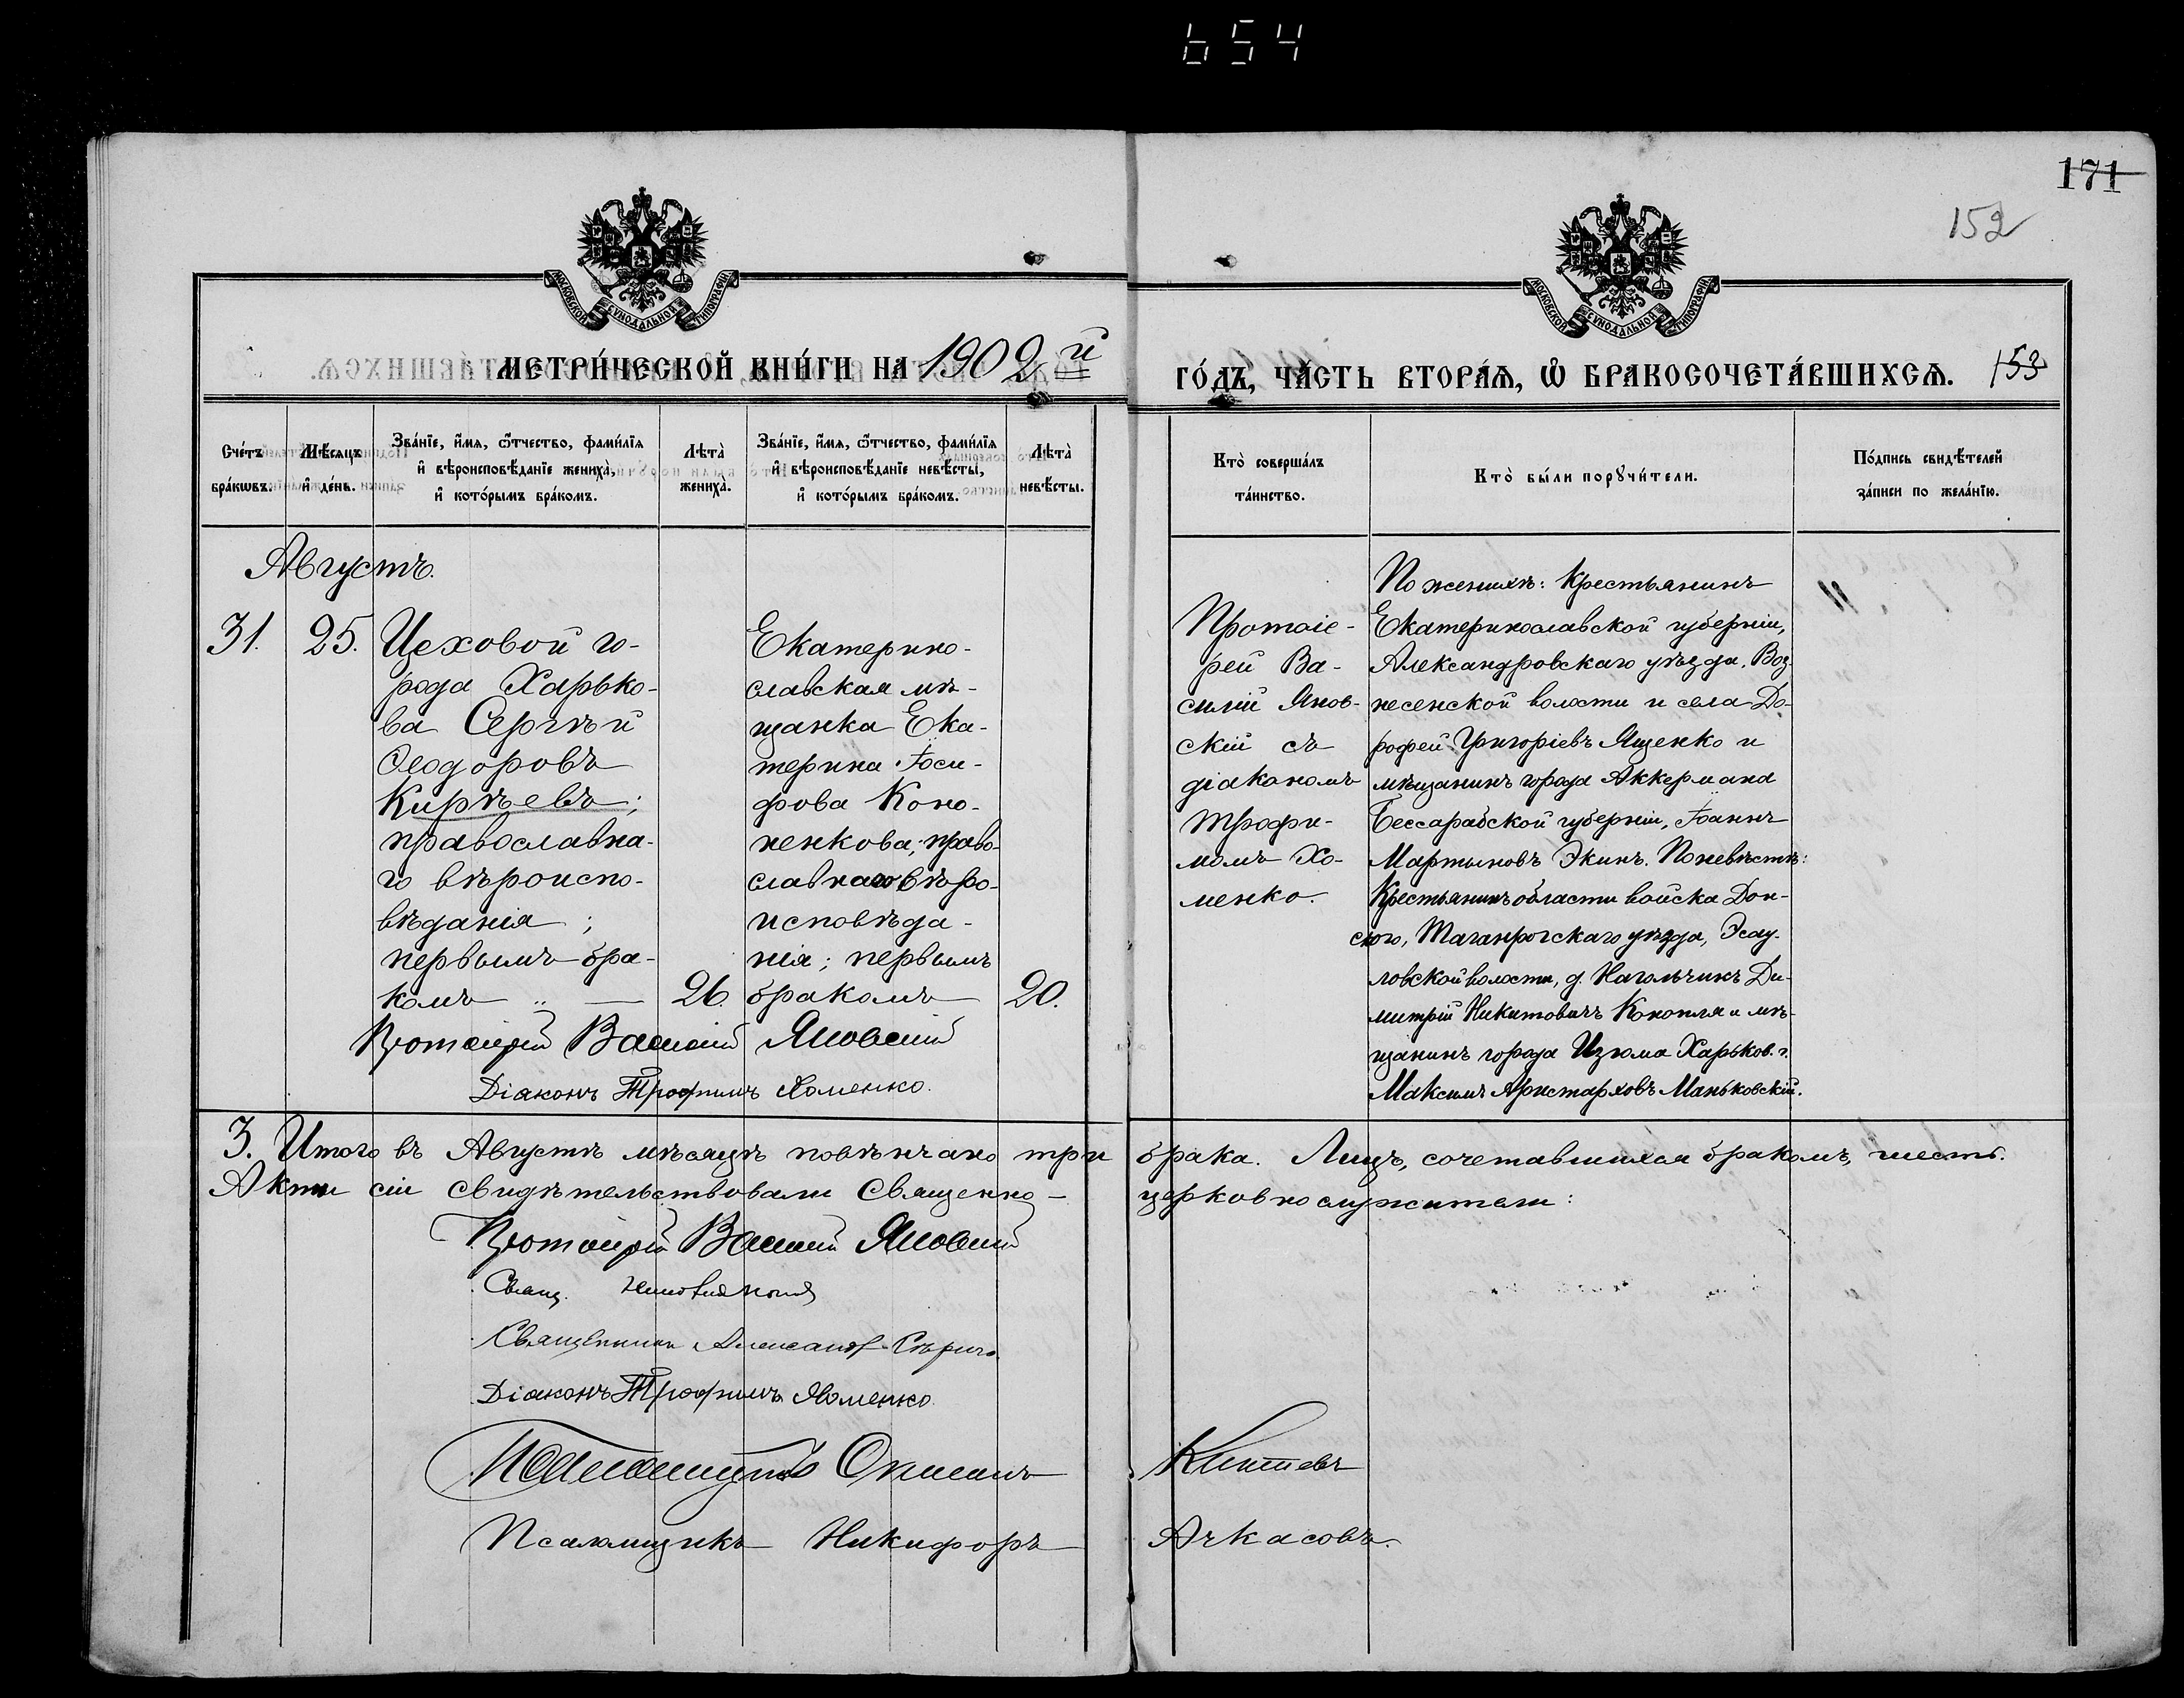 654
171
152
МОСКОВСКОЙ СѴНОДАЛЬНОЙ ТИПОГРАФІИ
МОСКОВСКОЙ СѴНОДАЛЬНОЙ ТИПОГРАФІИ
МЕТРИ́ЧЕСКОЙ КНИ́ГИ НА 1902 й
ГО́ДЪ, ЧА́СТЬ ВТОРА́Ѧ, Ѡ҆ БРАКОСОЧЕТА́ВШИХСѦ. 153
Сче́тъ бра́кѡвъ.
Мѣ́сяцъ и҆ де́нь.
Зва́нїе, и҆́мѧ, ѻ҆́тчество, фами́лїѧ
и҆ вѣроисповѣ́данїе жениха̀,
и҆ кото́рымъ бра́комъ.
Лѣта̀ жениха̀.
Зва́нїе, и҆́мѧ, ѻ҆́тчество, фами́лїѧ
и҆ вѣроисповѣ́данїе невѣ́сты,
и҆ кото́рымъ бра́комъ.
Лѣта̀ невѣ́сты.
Кто̀ соверша́лъ
та́инство.
Кто̀ бы́ли порꙋчи́тели.
По́дпись свидѣ́телей
за́писи по жела́нїю.
Августъ.
31.
25.
Цеховой го-
рода Харько-
ва Сергѣй
Ѳеодоровъ
Кирѣевъ;
православна-
го вѣроиспо-
вѣданія;
первымъ бра-
комъ „ —
26.
Екатерино-
славская мѣ-
щанка Ека-
терина Іоси-
фова Коно-
ненкова; право-
славнаго вѣро-
исповѣда-
нія; первымъ
бракомъ
20.
Протоіе-
рей Ва-
силій Янов-
скій съ
діакономъ
Трофи-
момъ Хо-
менко.
По женихѣ: Крестьянинъ
Екатеринославской губерніи,
Александровскаго уѣзда, Воз-
несенской волости и села До-
рофей Григоріевъ Ященко и
мѣщанинъ города Аккермана
Бессарабской губерніи, Іоаннъ
Мартыновъ Экинъ. По невѣстѣ:
Крестьянинъ области войска Дон-
ского, Таганрогскаго уѣзда, Эсау-
ловской волости, д. Нагольчикъ Ди-
митрій Никитовичъ Конопля и мѣ-
щанинъ города Изюма Харьков. г.
Максимъ Аристарховъ Маньковскій.
Протоіерей Василій Яновскій
Діаконъ Трофимъ Хоменко.
3. Итого въ Августѣ мѣсяцѣ повѣнчано три брака. Лицъ, сочетавшихся бракомъ, шесть.
Акты сіи свидѣтельствовали Священно-церковнослужители:
Протоіерей Василій Яновскій
Свящ.
Священникъ Александръ
Діаконъ Трофимъ Хоменко
Псаломщикъ
Псаломщикъ Никифоръ Ачкасовъ.